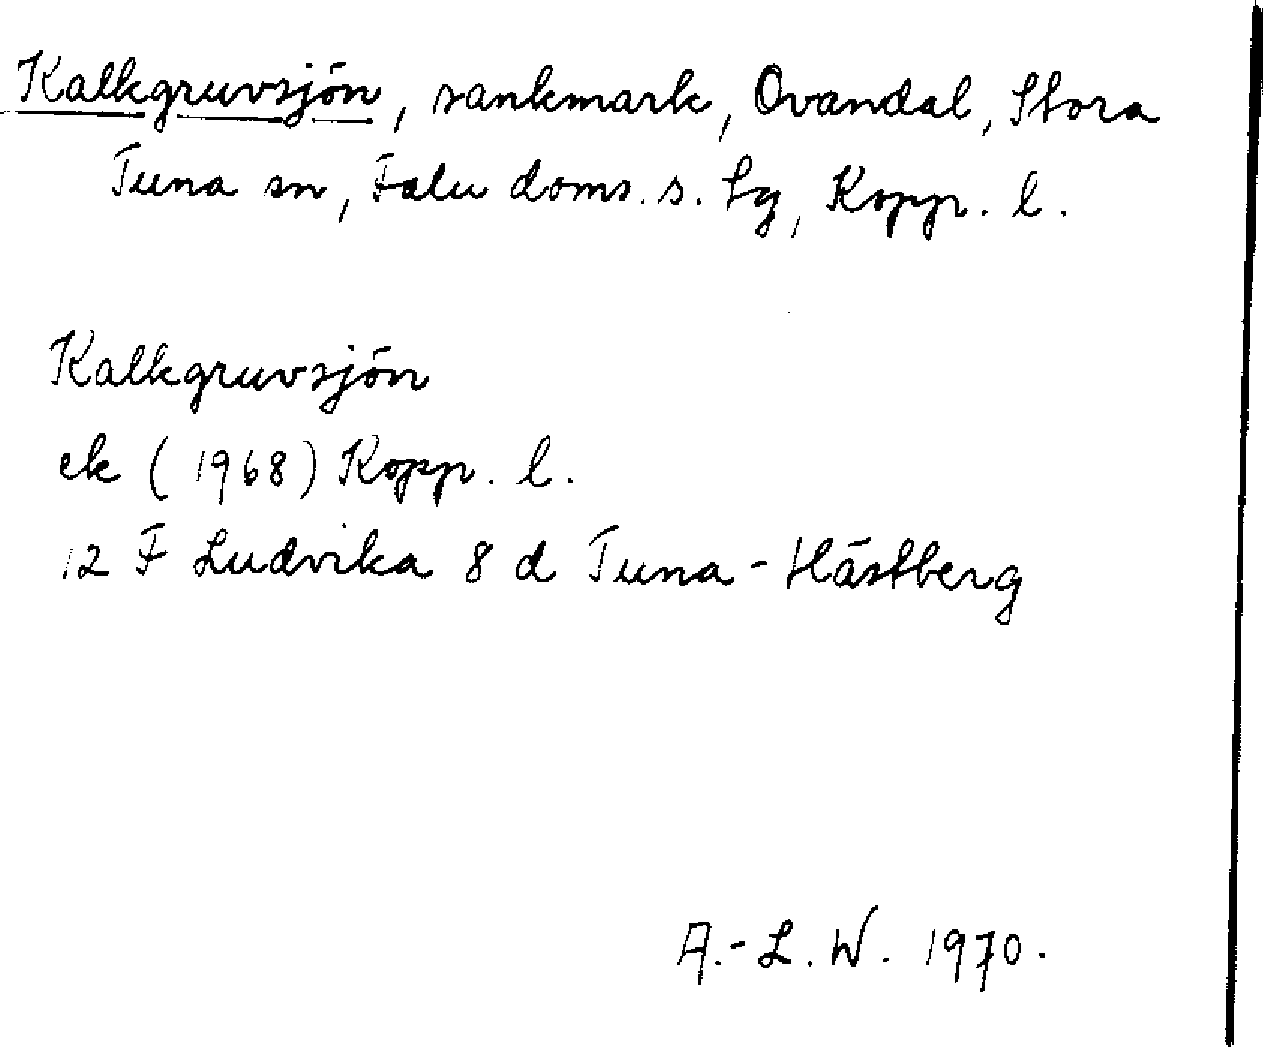 Kalkgruvsjön, sankmark, Ovandal, Stora
Tuna sn, Falu doms. s. tg, Kopp. l.
Kalkgruvsjön
ek (1968) Kopp. l.
12 F Ludvika 8 d Tuna-Hästberg
A.-L. W. 1970.